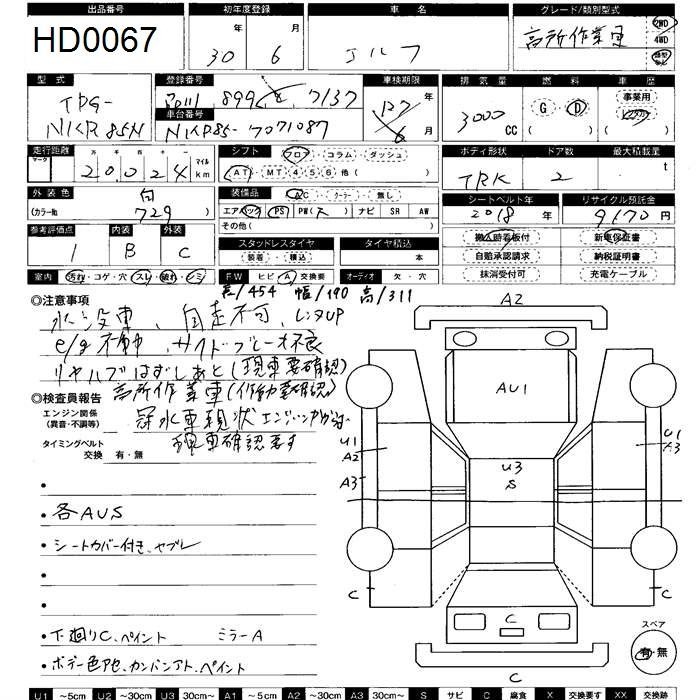 出品番号 初年度登録 車名 グレード/類別型式
HD0067 30年 6月 エルフ 高所作業車 2WD 4WD
型式 登録番号 車検期限 排気量 燃料 車歴
TPG-NKR85N 899 7137 年 6月 3000CC G・D 事業用
車台番号 NKR85-7071087
走行距離 シフト ボディ形状 ドア数 最大積載量
マーク 十万 万 千 百 十 一 マイル
20024 km フロア・コラム・ダッシュ TRK 2 t
AT・MT 4 5 6 他( )
外装色 白 装備品 AC・クーラー・無し シートベルト年 リサイクル預託金
(カラーNo 729 ) エアバック PS PW( ) ナビ SR AW 2018年 9170円
その他( )
参考評価点 内装 外装 搬入時看板付 新車保証書
1 B C スタッドレスタイヤ タイヤ積込 自賠承認請求 納税証明書
装着・積込 本 抹消受付可 充電ケーブル
室内 汚れ・コゲ・穴・スレ・破れ・シミ FW ヒビ・A・交換要 オーディオ 欠・穴
長/454 幅/190 高/311
◎注意事項
水没車、自走不可、レッカUP
e/g不動、サイドブレーキ不良
(現車要確認)
高所作業車(作動要確認)
◎検査員報告
エンジン関係
(異音・不調等)
冠水車現状
現車確認要す
タイミングベルト
交換 有・無
・各AUS
・シートカバー付き、ヤブレ
・下廻りC、ペイント ミラーA
・ボデー色アセ、カンバンアト、ペイント
A2
AU1
U1
A2
A3
U3
S
U1
A3
C
C
C
C
スペア
有・無
U1 ~5cm U2 ~30cm U3 30cm~ A1 ~5cm A2 ~30cm A3 30cm~ S サビ C 腐食 X 交換要す XX 交換跡